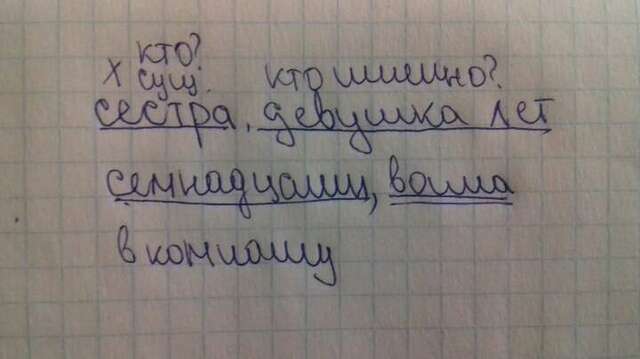 кто?
х сущ. кто именно?
сестра, девушка лет
семнадцати, вошла
в комнату